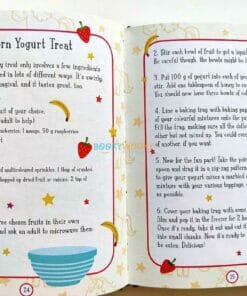 orn Yogurt Treat
treat only involves a few ingredients
ed in lots of different ways. It's swirly,
ngical, and it tastes great, too.
fruit of your choice.
adult to help)
berries, 1 mango, 50 g raspberries
urt
colored sprinkles, 1 tbsp of crushed
chopped up dried fruit or raisins, 2 tsp
ree chosen fruits in their own
and ask an adult to microwave them
24
BOOKY
2. Stir each bowl of fruit to get a liquid
Be careful though, the bowls might be
3. Put 100 g of yogurt into each of
stir. Add one tablespoon of honey to
You should now have three bowls of
4. Line a baking tray with baking pap
of your colourful mixtures onto the
fill the tray, making sure all the dol
other but not mixed up. You could even
two of another, if you want to.
5. Now for the fun part! Take the
spoon and drag it in a zig-zag pattern
to give your yogurt mixes a marbled
mixture with your various toppings
as possible.
6. Cover your baking tray with some
film and pop it in the freezer for 2
Once it's ready, take it out and cut it
it should shatter. Now it's ready to
be eaten. Delicious!
25